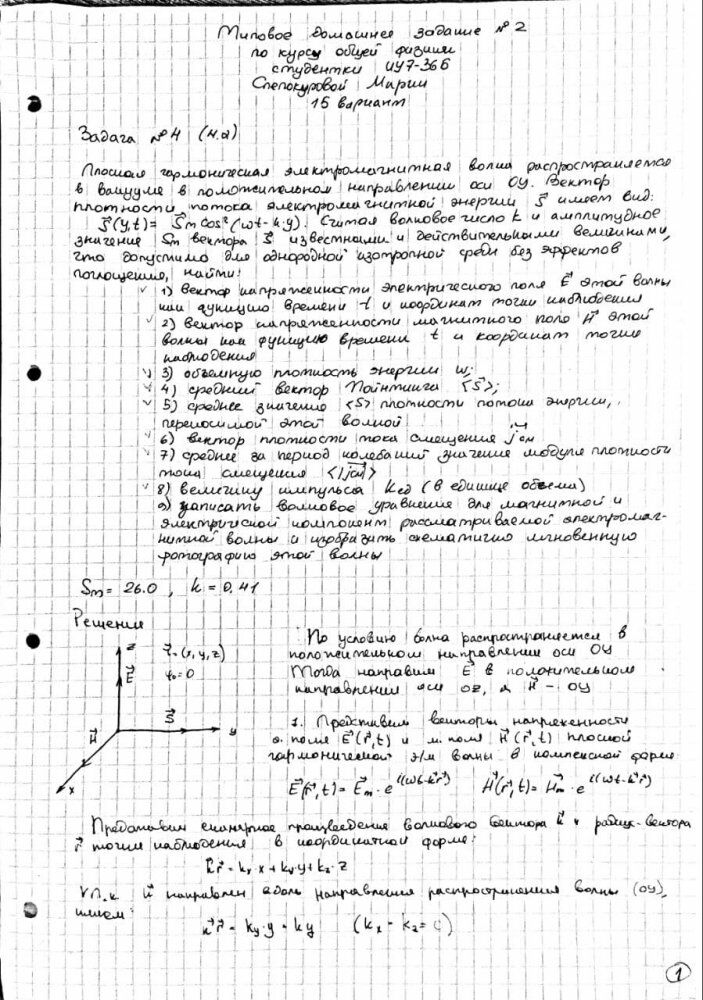 Типовое домашнее задание №2
по курсу общей физики
студентки ИУ7-36Б
Слепокуровой Марии
15 вариант
Задача №4 (4.2)
Плоская гармоническая электромагнитная волна распространяется
в вакууме в положительном направлении оси OY. Вектор
плотности потока электромагнитной энергии S⃗ имеет вид:
S⃗(y,t) = S⃗m cos²(ωt-ky). Считая волновое число k и амплитудное
значение Sm вектора S⃗ известными и действительными величинами,
что допустимо для однородной изотропной среды без эффектов
поглощения, найти:
1) вектор напряженности электрического поля E⃗ этой волны
как функцию времени t и координат точки наблюдения
2) вектор напряженности магнитного поля H⃗ этой
волны как функцию времени t и координат точки
наблюдения
3) объемную плотность энергии w;
4) средний вектор Пойнтинга <S⃗>;
5) среднее значение <S> плотности потока энергии,
переносимой этой волной
6) вектор плотности тока смещения j⃗см
7) среднее за период колебаний значение модуля плотности
тока смещения <|j⃗см|>
8) величину импульса Kед (в единице объема)
9) записать волновое уравнение для магнитной и
электрической компонент рассматриваемой электромаг-
нитной волны и изобразить схематично мгновенную
фотографию этой волны
Sm = 26.0, k = 0.41
Решение
z r⃗ = (x, y, z)
E⃗ φ₀=0
H⃗ S⃗ y
x
По условию волна распространяется в
положительном направлении оси OY
Тогда направим E⃗ в положительном
направлении оси OZ, а H⃗ - OY
1. Представим векторы напряженности
э. поля E⃗(r⃗,t) и м. поля H⃗(r⃗,t) плоской
гармонической э/м волны в комплексной форме
E⃗(r⃗,t) = E⃗m·e^i(ωt-k⃗r⃗) H⃗(r⃗,t) = H⃗m·e^i(ωt-k⃗r⃗)
Представим скалярное произведение волнового вектора k⃗ и радиус-вектора
r⃗ точки наблюдения в координатной форме:
k⃗r⃗ = kx·x + ky·y + kz·z
k⃗ направлен вдоль направления распространения волны (OY),
имеем:
k⃗r⃗ = ky·y = ky (kx = kz = 0)
1